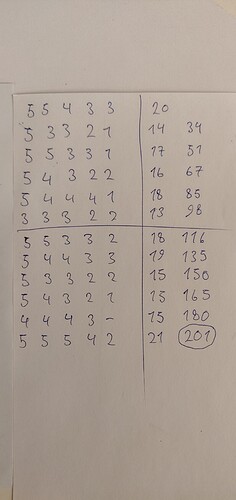 5 5 4 3 3 20
5 3 3 2 1 14 34
5 5 3 3 1 17 51
5 4 3 2 2 16 67
5 4 4 4 1 18 85
3 3 3 2 2 13 98
5 5 3 3 2 18 116
5 4 4 3 3 19 135
5 3 3 2 2 15 150
5 4 3 2 1 15 165
4 4 4 3 - 15 180
5 5 5 4 2 21 201